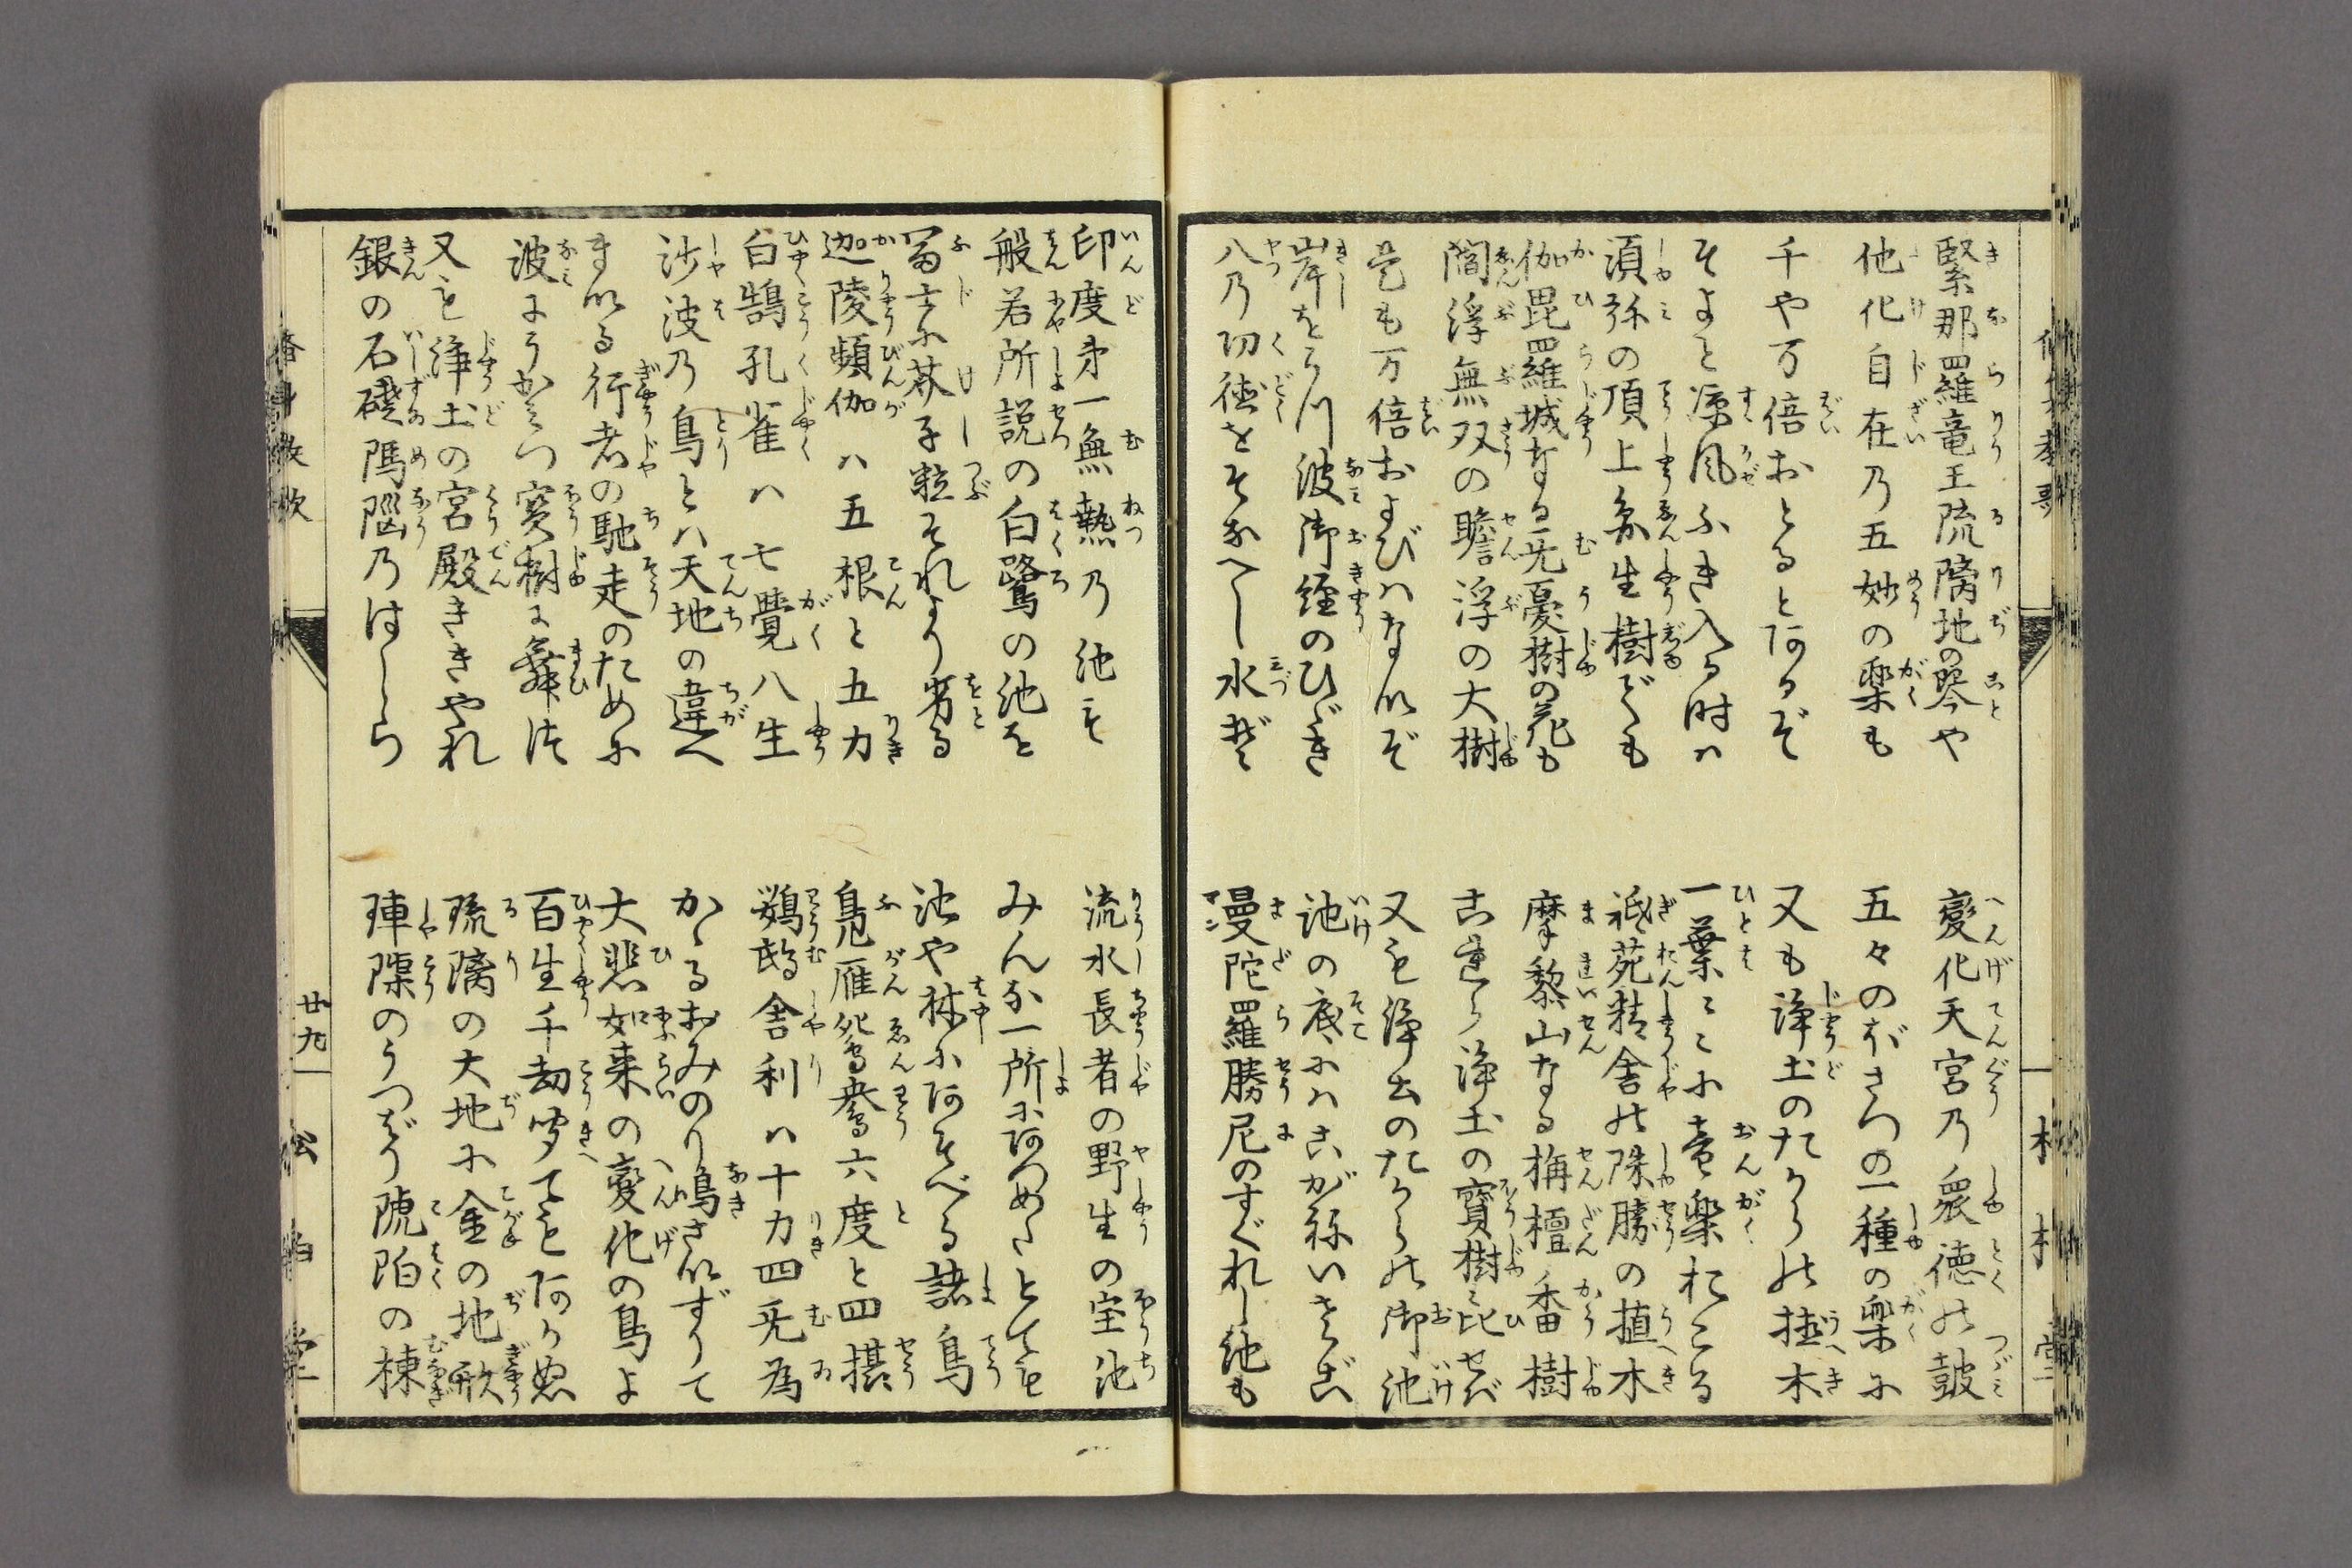 緊那羅竜王流璃地の琴や
変化天宮乃衆徳の鼓
他化自在乃五妙の楽も
五々のぼさつの一種の楽に
千や万倍おとると阿るぞ
又も浄土のたからの植木
そよと涼風ふき入る時ハ
一葉〻〻に音楽おこる
須弥の頂上圓生樹でも
祗苑精舎の殊勝の植木
伽毘羅城なる無憂樹の花も
摩黎山なる栴檀香樹
閻浮無双の贍浮の大樹
浄土の寳樹に比せば
是も万倍およびハないぞ
又も浄土のたからの御池
岸をうつ波御経のひゞき
池の底にハこがねいさご
八乃功徳をそなへし水ぞ
曼陀羅勝尼のすぐれし池も
印度第一無熱乃池も
流水長者の野生の宝池
般若所説の白鷺の池を
みんな一所に阿つめたとても
冨士に芥子粒それより劣る
池や林に阿そべる諸鳥
迦陵頻伽ハ五根と五力
鳬雁鴛鴦六度と四摂
白鵠孔雀ハ七覺八生
鸚鵡舎利ハ十力四無為
沙波乃鳥とハ天地の違へ
かゝるおみのり鳴さいずりて
まいる行者の馳走のために
大悲如来の変化の鳥よ
波にうかみつ寳樹に舞つ
百生千劫聞ても阿かぬ
又も浄土の宮殿ききやれ
琉璃の大地に金の地形
銀の石礎瑪瑙乃はしら
硨磲のうつばり琥珀の棟
廿九
松柏堂